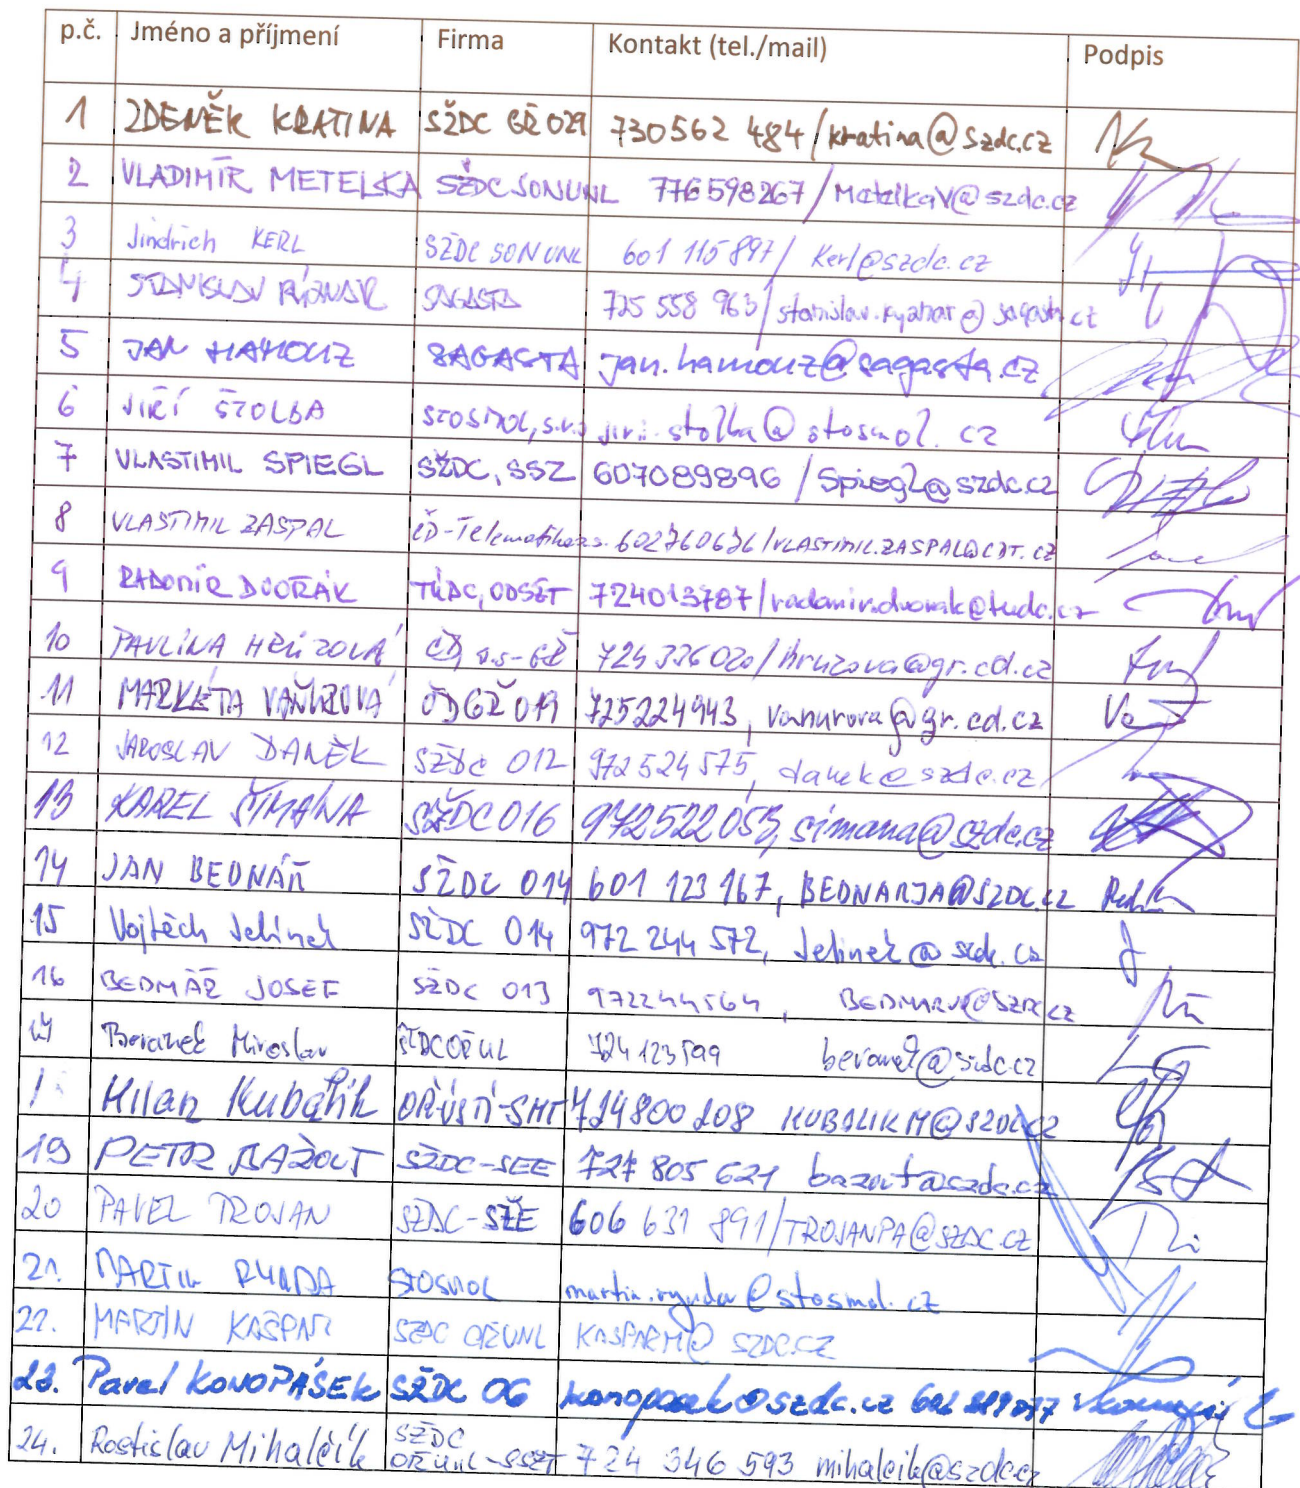 p.č. Jméno a příjmení Firma Kontakt (tel./mail) Podpis
1 ZDENĚK KRATINA SŽDC GŘ O29 730562 484/kratina@szdc.cz
2 VLADIMÍR METELKA SŽDC SONUNL 776598267/MetelkaV@szdc.cz
3 Jindřich KERL SŽDC SON UNL 601 115 897/ Kerl@szdc.cz
4 STANISLAV SAGASTA 725 558 963/
5 JAN HAMOUZ SAGASTA jan.hamouz@sagasta.cz
6 JIŘÍ ŠTOLBA STOSMOL, s.r.o jiri.stolba@stosmol.cz
7 VLASTIMIL SPIEGL SŽDC, SSZ 607089896 /Spiegl@szdc.cz
8 VLASTIMIL ZASPAL ČD-Telematika a.s. 602760636/VLASTIMIL.ZASPAL@CDT.CZ
9 RADOMÍR DVOŘÁK TÚDC, ODSZT 724013787/radomir.dvorak@tudc.cz
10 PAVLÍNA HRŮZOVÁ ČD, a.s-GŘ 724 336 020/hruzova@gr.cd.cz
11 MARKÉTA VAŇUROVÁ ČD GŘ O19 725224943, vanurova@gr.cd.cz
12 JAROSLAV DANĚK SŽDC O12 972 524 575, danek@szdc.cz
13 KAREL ŠIMÁNA SŽDC O16 simana@szdc.cz
14 JAN BEDNÁŘ SŽDC O14 601 123 167, BEDNARJA@SZDC.CZ
15 Vojtěch Jelínek SŽDC O14 972 244 572, Jelinek@szdc.cz
16 BEDNÁŘ JOSEF SŽDC O13 972244564,
Beránek Miroslav SŽDC OŘ UL 724 123 599
Milan Kubalík OŘ ÚSTÍ-SMT 724800208 KUBALIKM@SZDC.CZ
19 PETR BAŽOUT SŽDC-SEE 727 805 621 bazout@szdc.cz
20 PAVEL TROJAN SŽDC-SŽE 606 631 891/TROJANPA@SZDC.CZ
21. MARTIN RYNDA STOSMOL martin.rynda@stosmol.cz
22. MARTIN KAŠPAR SŽDC OŘ UNL KASPARM@SZDC.CZ
23. Pavel KONOPÁSEK SŽDC O6 konopasek@szdc.cz
24. Rostislav Mihalčík SŽDC
OŘ UNL-SSZT 724 346 593 mihalcik@szdc.cz